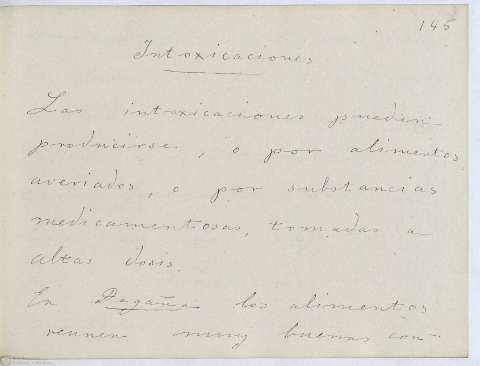 145
Intoxicaciones
Las intoxicaciones pueden
producirse, o por alimentos
averiados, o por substancias
medicamentosas, tomadas a
altas dosis.
En Pegaña los alimentos
reunen muy buenas con-